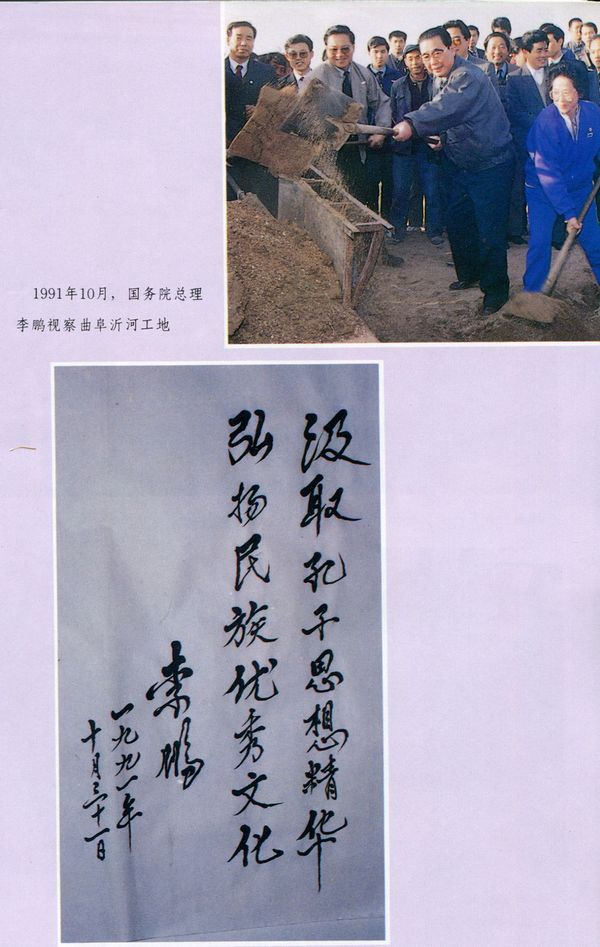 1991年10月，国务院总理
李鹏视察曲阜沂河工地
汲取孔子思想精华
弘扬民族优秀文化
李鹏
一九九一年
十月三十一日